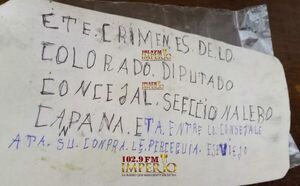 ETE.CRIMEN.ES.DE.LO
COLORADO.DIPUTADO
CONCEJAL.SECCIONALERO
CAPANA.ETA.ENTRE LI CONSEJALE
ATA.SU.COMPRA.LE.PERCEGUIA.ESE VIEJO
102.9 FM
IMPERIO
102.9 FM
IMPERIO